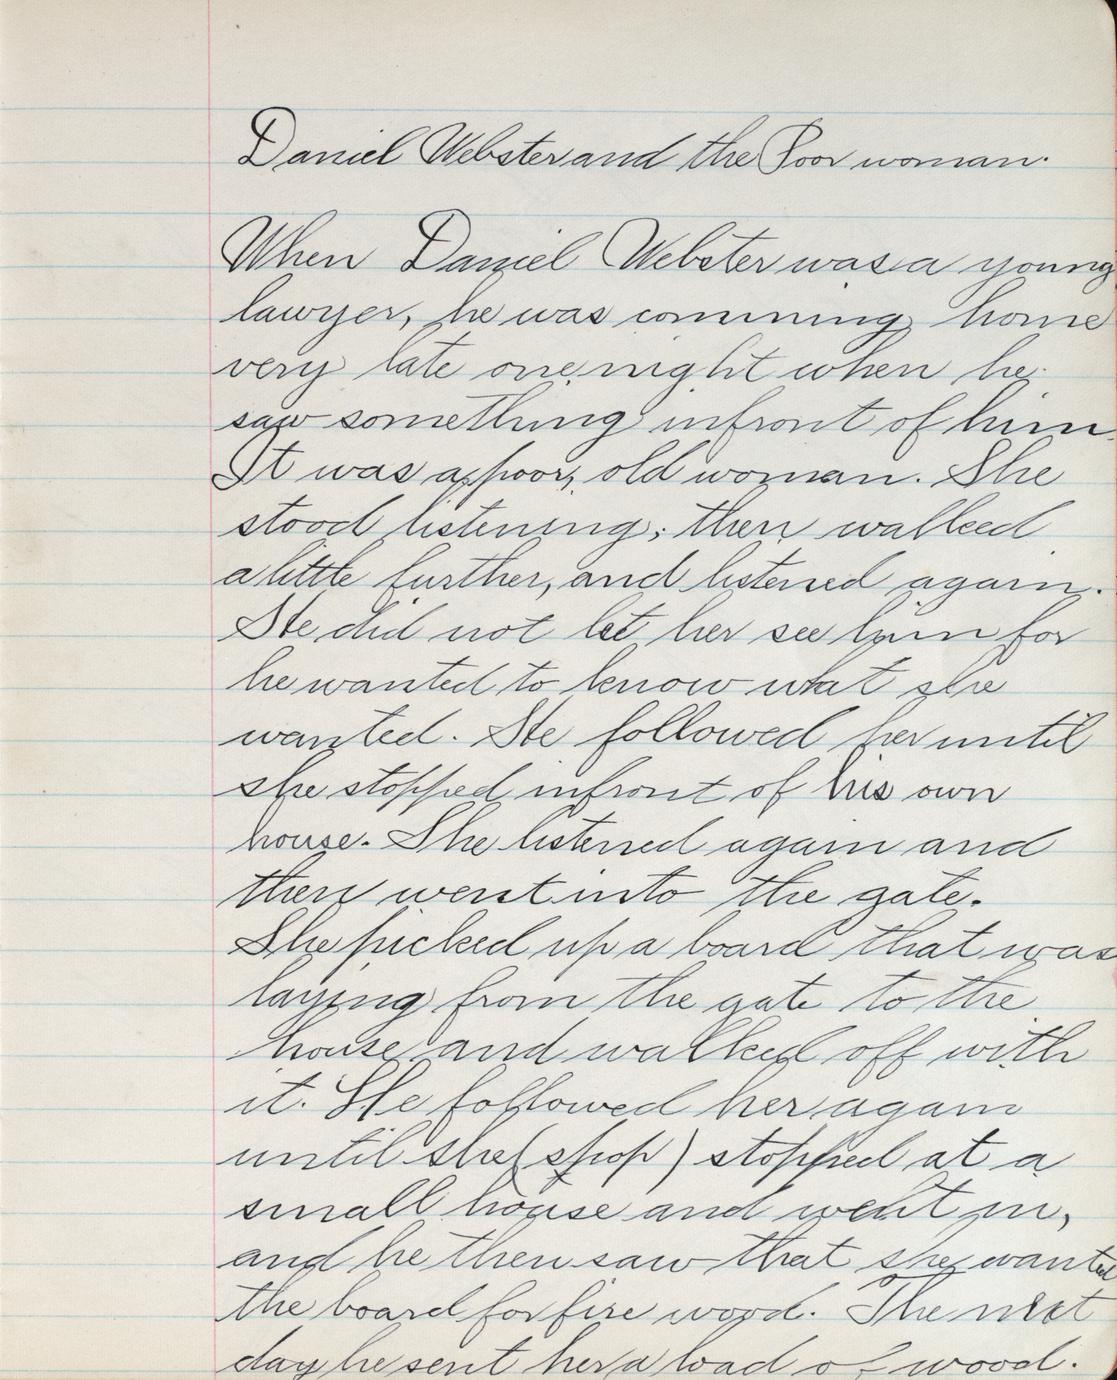 Daniel Webster and the Poor woman.
When Daniel Webster was a young
lawyer, he was comming home
very late one night when he
saw something infront of him.
It was a poor, old woman. She
stood listening; then walked
a little further, and listened again.
He did not let her see him for
he wanted to know what she
wanted. He followed her until
she stopped infront of his own
house. She listened again and
then went into the gate.
She picked up a board that was
laying from the gate to the
house and walked off with
it. He followed her again
until she (spop) stopped at a
small house and went in,
and he then saw that she wanted
the board for fire wood. The next
day he sent her a load of wood.